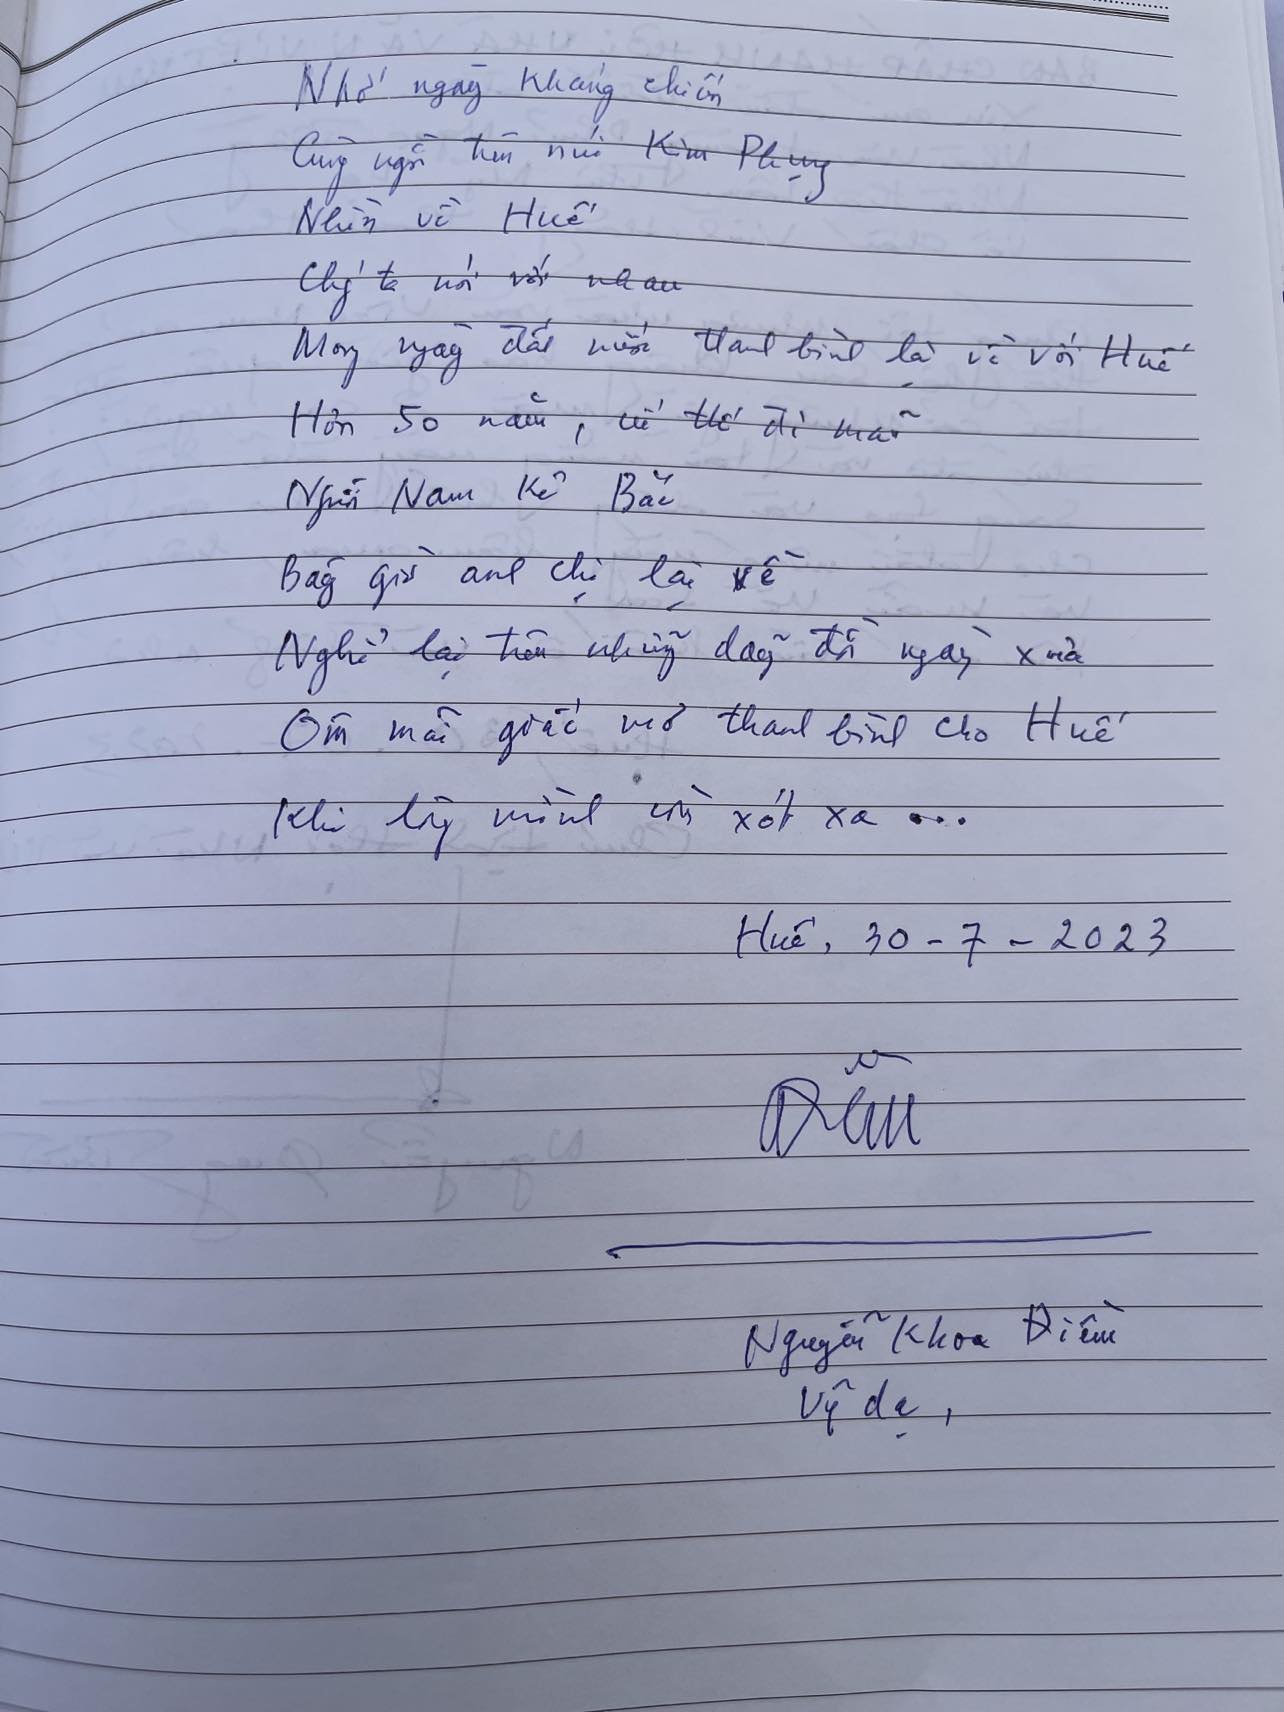 Nhớ ngày kháng chiến
Cùng ngồi trên núi Kim Phụng
Nhìn về Huế
Chúng ta nói với nhau
Mong ngày đất nước thanh bình lại về với Huế
Hơn 50 năm, cứ thế đi mãi
Người Nam kẻ Bắc
Bây giờ anh chị lại về
Nghỉ lại trên những dãy đồi ngày xưa
Ôm mãi giấc mơ thanh bình cho Huế
Khi lòng mình còn xót xa ...
Huế, 30-7-2023
Nguyễn Khoa Điềm
Vỹ dạ,